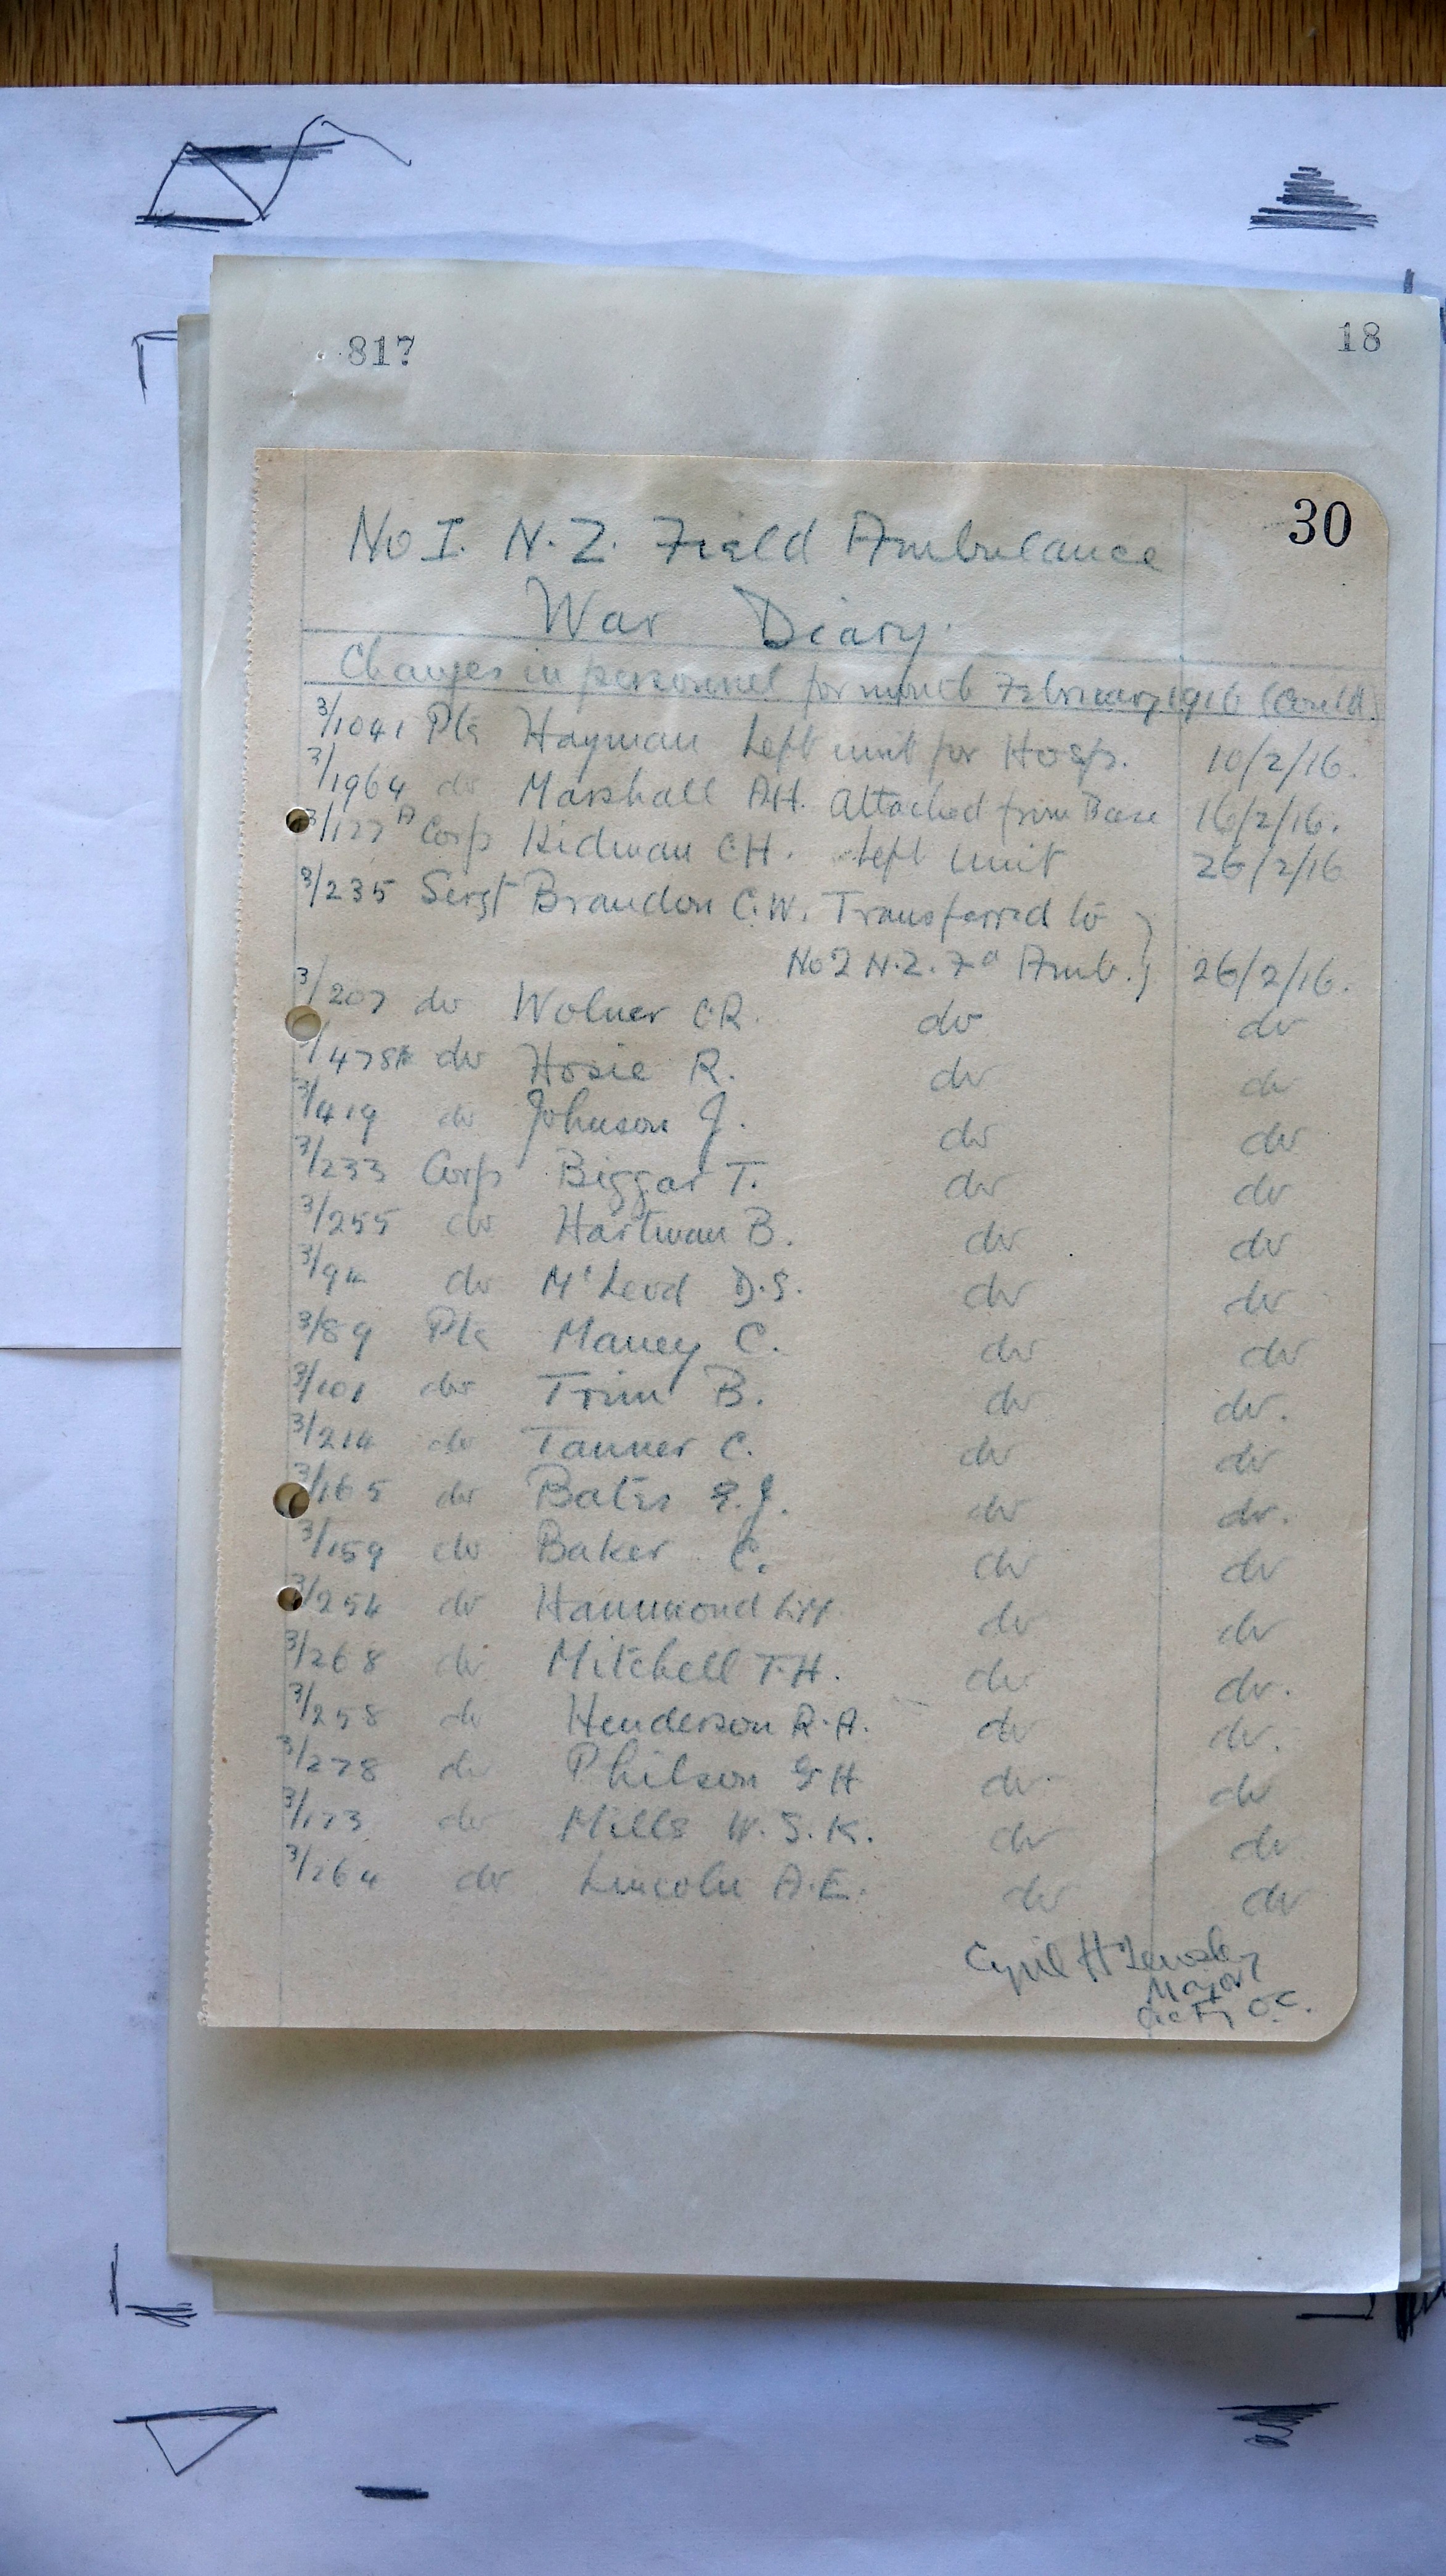 817
18
30
No I. N.Z. Field Ambulance
War Diary.
Changes in personnel for month February 1916 (Contd)
3/1041 Pte Hayman Left unit for Hosp. 10/2/16.
3/1964 do Marshall A.H. Attached from Base 16/2/16.
3/127A Corp Kidman C.H. Left Unit 26/2/16
3/235 Sergt Brandon C.W. Transferred to
No 2 N.Z. Fd Amb. 26/2/16.
3/207 do Wolner C.R. do do
do Hosie R. do do
3/419 do Johnson J. do do
3/233 Corp Biggar T. do do
3/255 do Hartman B. do do
3/94 do McLeod D.S. do do
3/89 Pte Maney C. do do
3/101 do Trim B. do do.
3/214 do Tanner C. do do
3/165 do Bates J. do do.
3/159 do Baker C. do do
3/254 do Hammond do do
3/268 do Mitchell T.H. do do.
3/258 do Henderson R.A. do do.
3/278 do Philson G H do do
3/173 do Mills W.S.K. do do
3/264 do Lincoln A.E. do do
Cyril H
Major
Actg O.C.